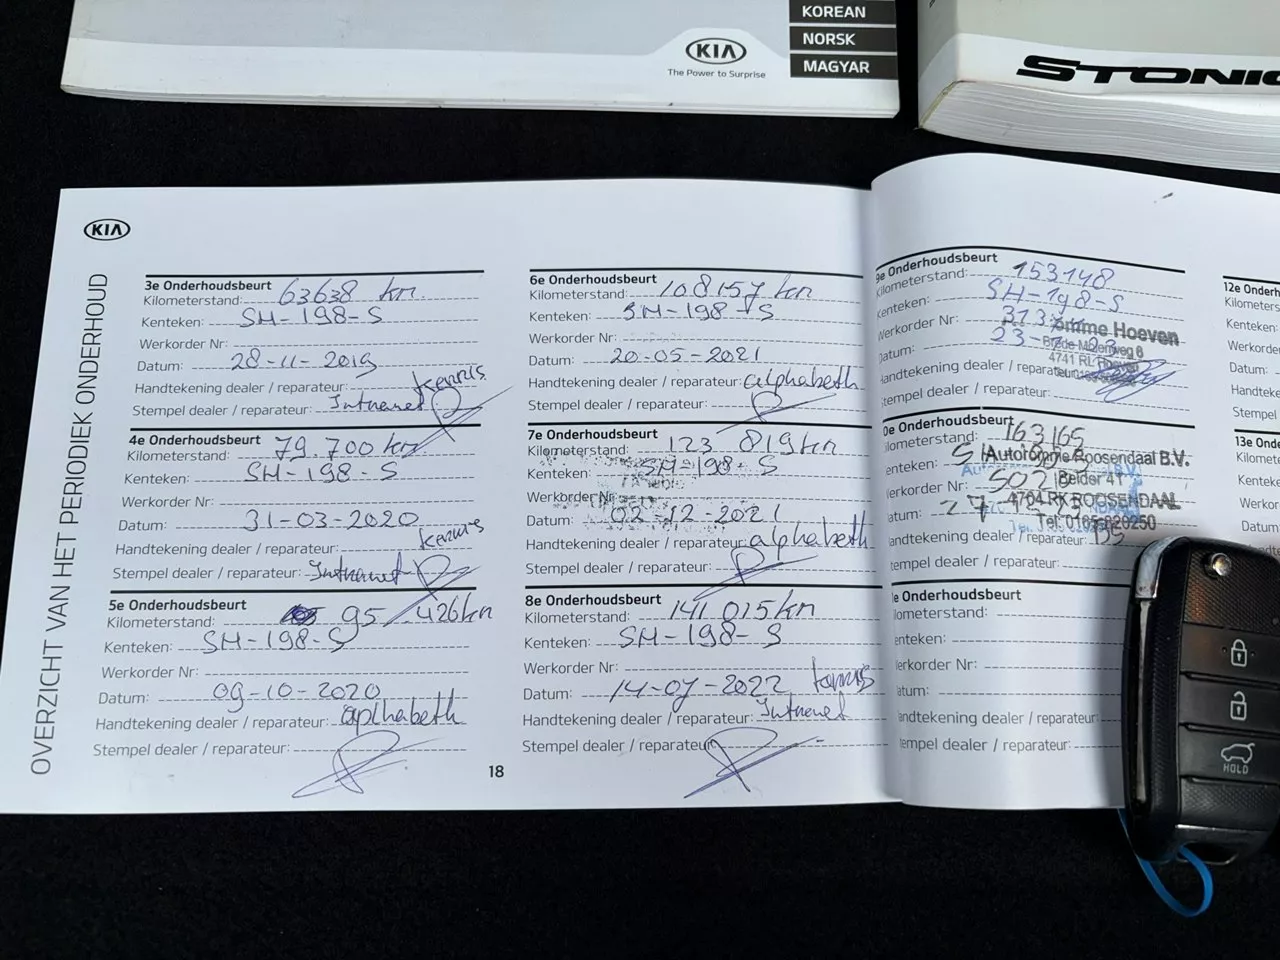 KOREAN
NORSK
MAGYAR
KIA
The Power to Surprise
STONIC
KIA
OVERZICHT VAN HET PERIODIEK ONDERHOUD
3e Onderhoudsbeurt
Kilometerstand: 63638 km
Kenteken: SH-198-S
Werkorder Nr:
Datum: 28-11-2019
Handtekening dealer / reparateur: Kennis
Stempel dealer / reparateur: Intranet
4e Onderhoudsbeurt
Kilometerstand: 79.700 km
Kenteken: SH-198-S
Werkorder Nr:
Datum: 31-03-2020
Handtekening dealer / reparateur: Kennis
Stempel dealer / reparateur: Intranet
5e Onderhoudsbeurt
Kilometerstand: 95.426km
Kenteken: SH-198-S
Werkorder Nr:
Datum: 09-10-2020
Handtekening dealer / reparateur: aplhabeth
Stempel dealer / reparateur:
18
6e Onderhoudsbeurt
Kilometerstand: 108157 km
Kenteken: SH-198-S
Werkorder Nr:
Datum: 20-05-2021
Handtekening dealer / reparateur: alphabeth
Stempel dealer / reparateur:
7e Onderhoudsbeurt
Kilometerstand: 123 819km
Kenteken: SH-198-S
Werkorder Nr:
Datum: 02-12-2021
Handtekening dealer / reparateur: alphabeth
Stempel dealer / reparateur:
8e Onderhoudsbeurt
Kilometerstand: 141.015km
Kenteken: SH-198-S
Werkorder Nr:
Datum: 14-07-2022 Kennis
Handtekening dealer / reparateur: Intranet
Stempel dealer / reparateur:
9e Onderhoudsbeurt
Kilometerstand: 153148
Kenteken: SH-198-S
Werkorder Nr:
omme Hoeven
Datum: 23-
4741 RL
Handtekening dealer / reparateur:
Stempel dealer / reparateur:
0e Onderhoudsbeurt
Kilometerstand: 163165
Kenteken:
Autoromme Roosendaal B.V.
Werkorder Nr: 502
Belder 41
Datum: 27
4704 RK ROOSENDAAL
Tel. 0165-820250
Handtekening dealer / reparateur:
e Onderhoudsbeurt
ilometerstand:
enteken:
erkorder Nr:
atum:
andtekening dealer / reparateur:
tempel dealer / reparateur:
12e Onderh
Kilometers
Kenteken:
Werkorder
Datum:
Handteke
Stempel
13e Onder
Kilometer
Kenteke
Werkord
Datum
HOLD